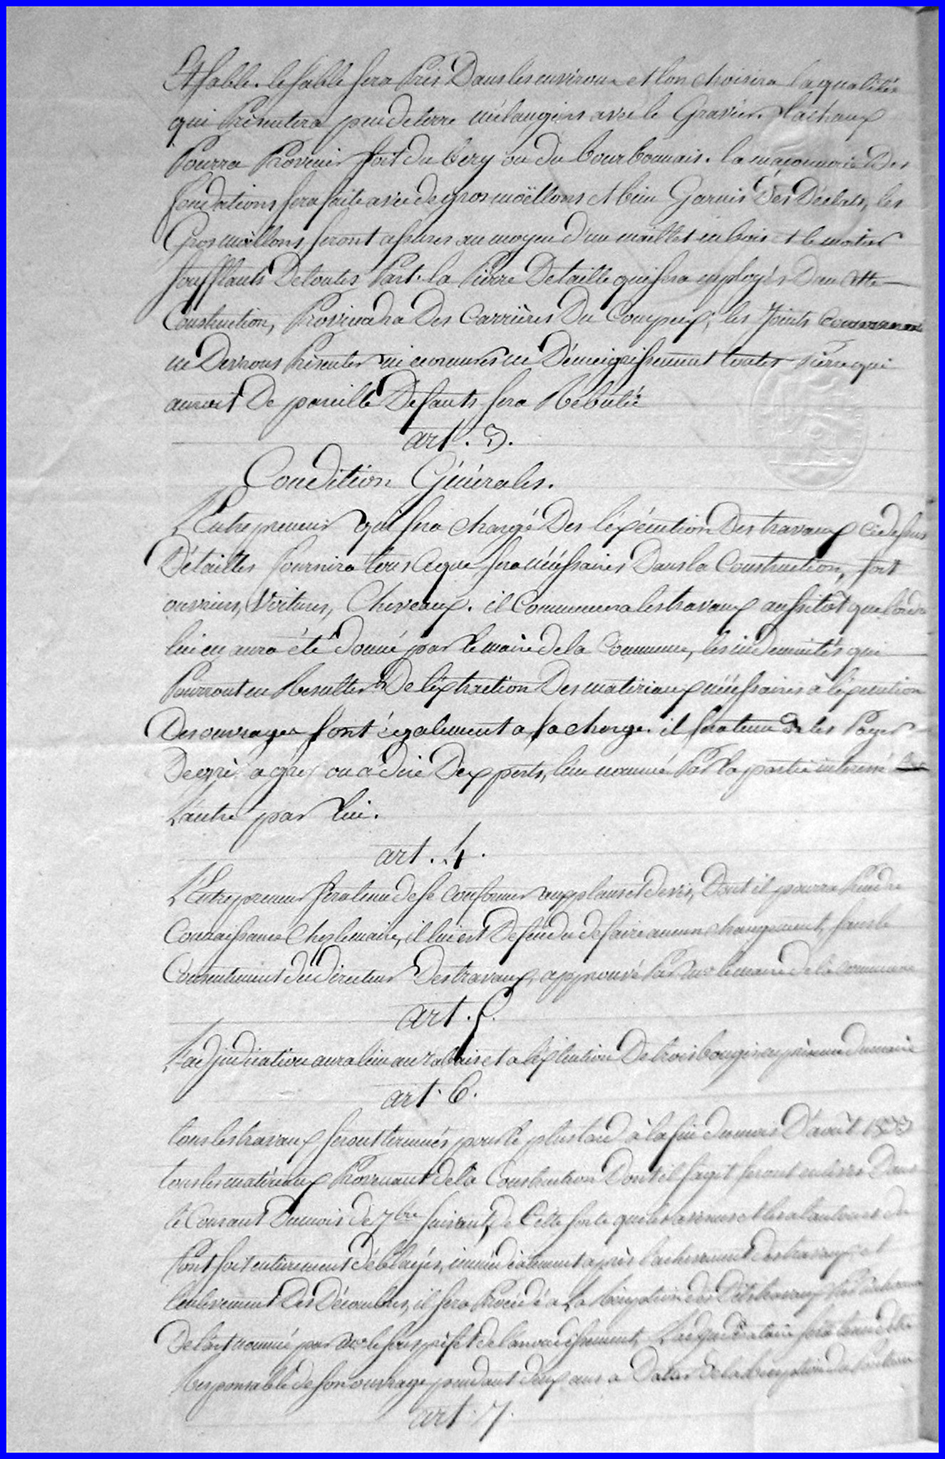 Et sable. le sable sera Pris Dans les environs et l'on choisira la qualitée
qui Présentera peu de terre mélangées avec le Gravier. La chaux
Pourra Provenir soit du bery ou du bourbonnais. la maçonnerie Des
fondations sera faite avec de gros moëllons et bien Garnis Des Déclats, les
Gros moëllons seront assures au moyen d'un maillet en bois et le mortier
soufflants De toutes Part. la Pierre De taille qui sera employés Dans cette
Construction, Proviendra Des Carrières Du Compeix, les Joints
ne Devrons Présenter ni ecornures ni Démaigrissement toutes Pierre qui
auroit De pareille Defauts sera Rebutée
art. 3.
Condition Générales.
L'Entrepreneur qui sera chargé Des l'exécution Des travaux ci dessus
Détailles fournira tous ce que sera nécessaires Dans la Construction, soit
ouvriers, Voitures, Cheveaux. il Commencera les travaux aussitot que l'ordre
lui en aura été donné par le maire de la Commune, les indemnités qui
Pourront en Résulter De l'extraction Des matériaux nécessaires à l'exécution
Des ouvrages sont également a sa charge. il sera tenu de les Payer
De gré a gré ou à Dire D'experts, l'un nommé Par la partie interressé
L'autre par lui.
art. 4.
L'Entrepreneur sera tenu de se conformer aux plans et devis, Dont il pourra Prendre
Connaissance Chez le maire, il lui est Défendu de faire aucun changement, sans le
Consentiment du directeur Des travaux, approuvé Par mr le maire de la commune
art. 5.
L'adjudication aura lieu au rabais et a l'extinction De trois bougies en présence du maire
art. 6.
tous les travaux seront terminés pour le plus tard à la fin du mois D'août 1833
tous les matériaux Provenant de la Construction Dont il s'agit seront enlevés Dans
le Courant Du mois de 7bre suivant, de Cette sorte que les avenues et les alentours du
Pont soit entierement déblayés, immédiatement après l'achevement des travaux et
l'enlevement Des Décombres, il sera Procédé a La Réception des Dits travaux Par
De l'art nommé par mr le sous préfet de l'arrondissement, L'adjudicataire sera
Responsable de son ouvrage pendant deux ans a Dater De la réception de
art. 7.